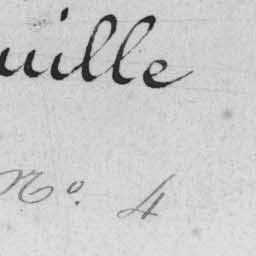 uille
No. 4